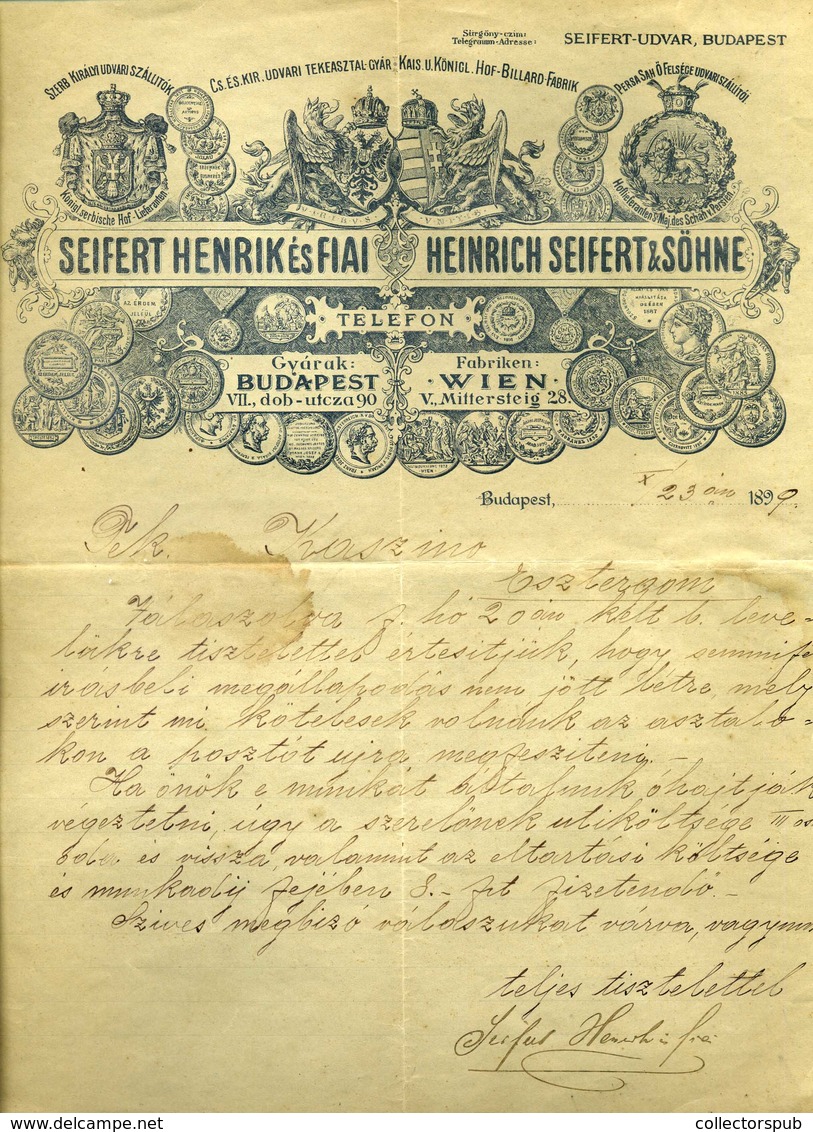 Sürgöny-czim:
Telegramm-Adresse:
SEIFERT-UDVAR, BUDAPEST
SZERB KIRÁLYI UDVARI SZÁLLITÓK
CS. ÉS. KIR. UDVARI TEKEASZTAL-GYÁR
KAIS. U. KÖNIGL. HOF-BILLARD-FABRIK
PERSA SAH Ő FELSÉGE UDVARI SZÁLLITÓI.
Königl. serbische Hof-Lieferanten
VIRIBUS UNITIS
Hoflieferanten Sr Maj. des Schah v. Persien
SEIFERT HENRIK és FIAI
HEINRICH SEIFERT & SÖHNE
AZ ÉRDEM JELÉÜL
TELEFON
Gyárak:
BUDAPEST
VII., dob-utcza 90
Fabriken:
WIEN
V., Mittersteig 28.
Budapest, X 23 án 1899.
Tek. Kaszino
Esztergom
Válaszolva f. hó 20 án kelt b. leve-
lükre tisztelettel értesitjük, hogy semmife
irásbeli megállapodás nem jött létre, mely
szerint mi kötelesek volnánk az asztalo-
kon a posztót ujra megfesziteni.-
Ha önök e munkát általunk óhajtják
végeztetni, úgy a szerelőnek utiköltsége III os
oda és vissza, valamint az eltartási költsége
és munkadij fejében 8.- frt fizetendő.-
Szives megbizó válaszukat várva, vagyunk
teljes tisztelettel
Seifert Henrik és fiai
collectorspub